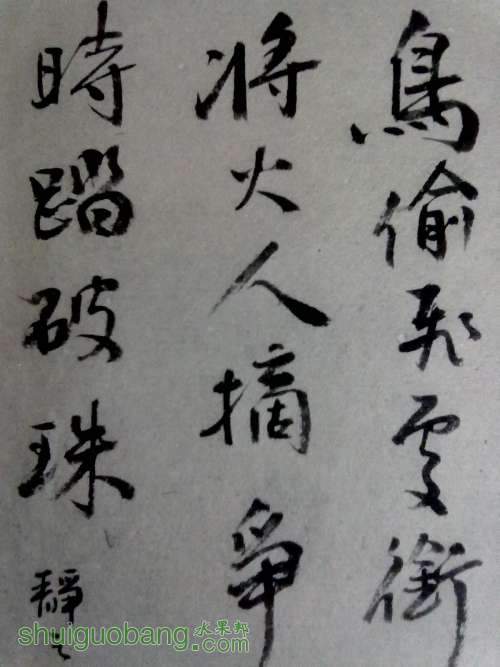 鳥偷飛處銜
將火人摘爭
時蹋破珠
水果邦
shuiguobang.com